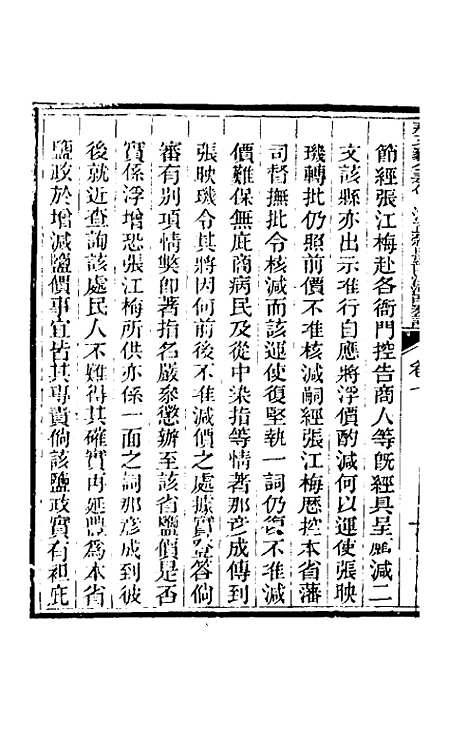 節經張江梅赴各衙門控告商人等旣經具呈願減二
文該縣亦出示准行自應將浮價酌減何以運使張映
璣轉批仍照前價不准核減嗣經張江梅歷控本省藩
司督撫批令核減而該運使復堅執一詞仍復不准減
價難保無庇商病民及從中染指等情著那彦成傳到
張映璣令其將因何前後不准減價之處據實登答倘
審有别項情獘卽著指名嚴叅懲辦至該省鹽價是否
實係浮增恐張江梅所供亦係一面之詞那彦成到彼
後就近查詢該處民人不難得其確實再延豐爲本省
鹽政於增減鹽價事宜皆其專責倘該鹽政實有袒庇
卷一